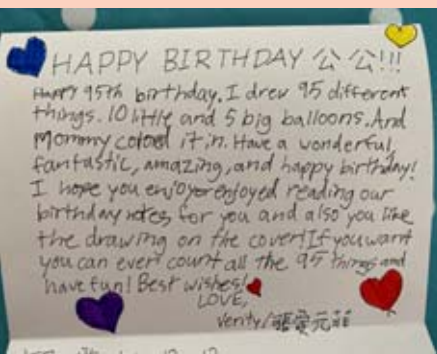 HAPPY BIRTHDAY 公公!!!
HAPPY 95th birthday. I drew 95 different
things. 10 little and 5 big balloons. And
Mommy colored it in. Have a wonderful,
fantastic, amazing, and happy birthday!
I hope you enjoy or enjoyed reading our
birthday notes for you and also you like
the drawing on the cover! If you want
you can even count all the 95 things and
have fun! Best wishes!
LOVE,
Verity/張愛元